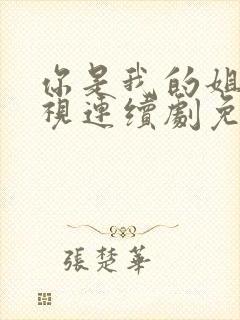 你是我的姐
視連續劇免
張楚華